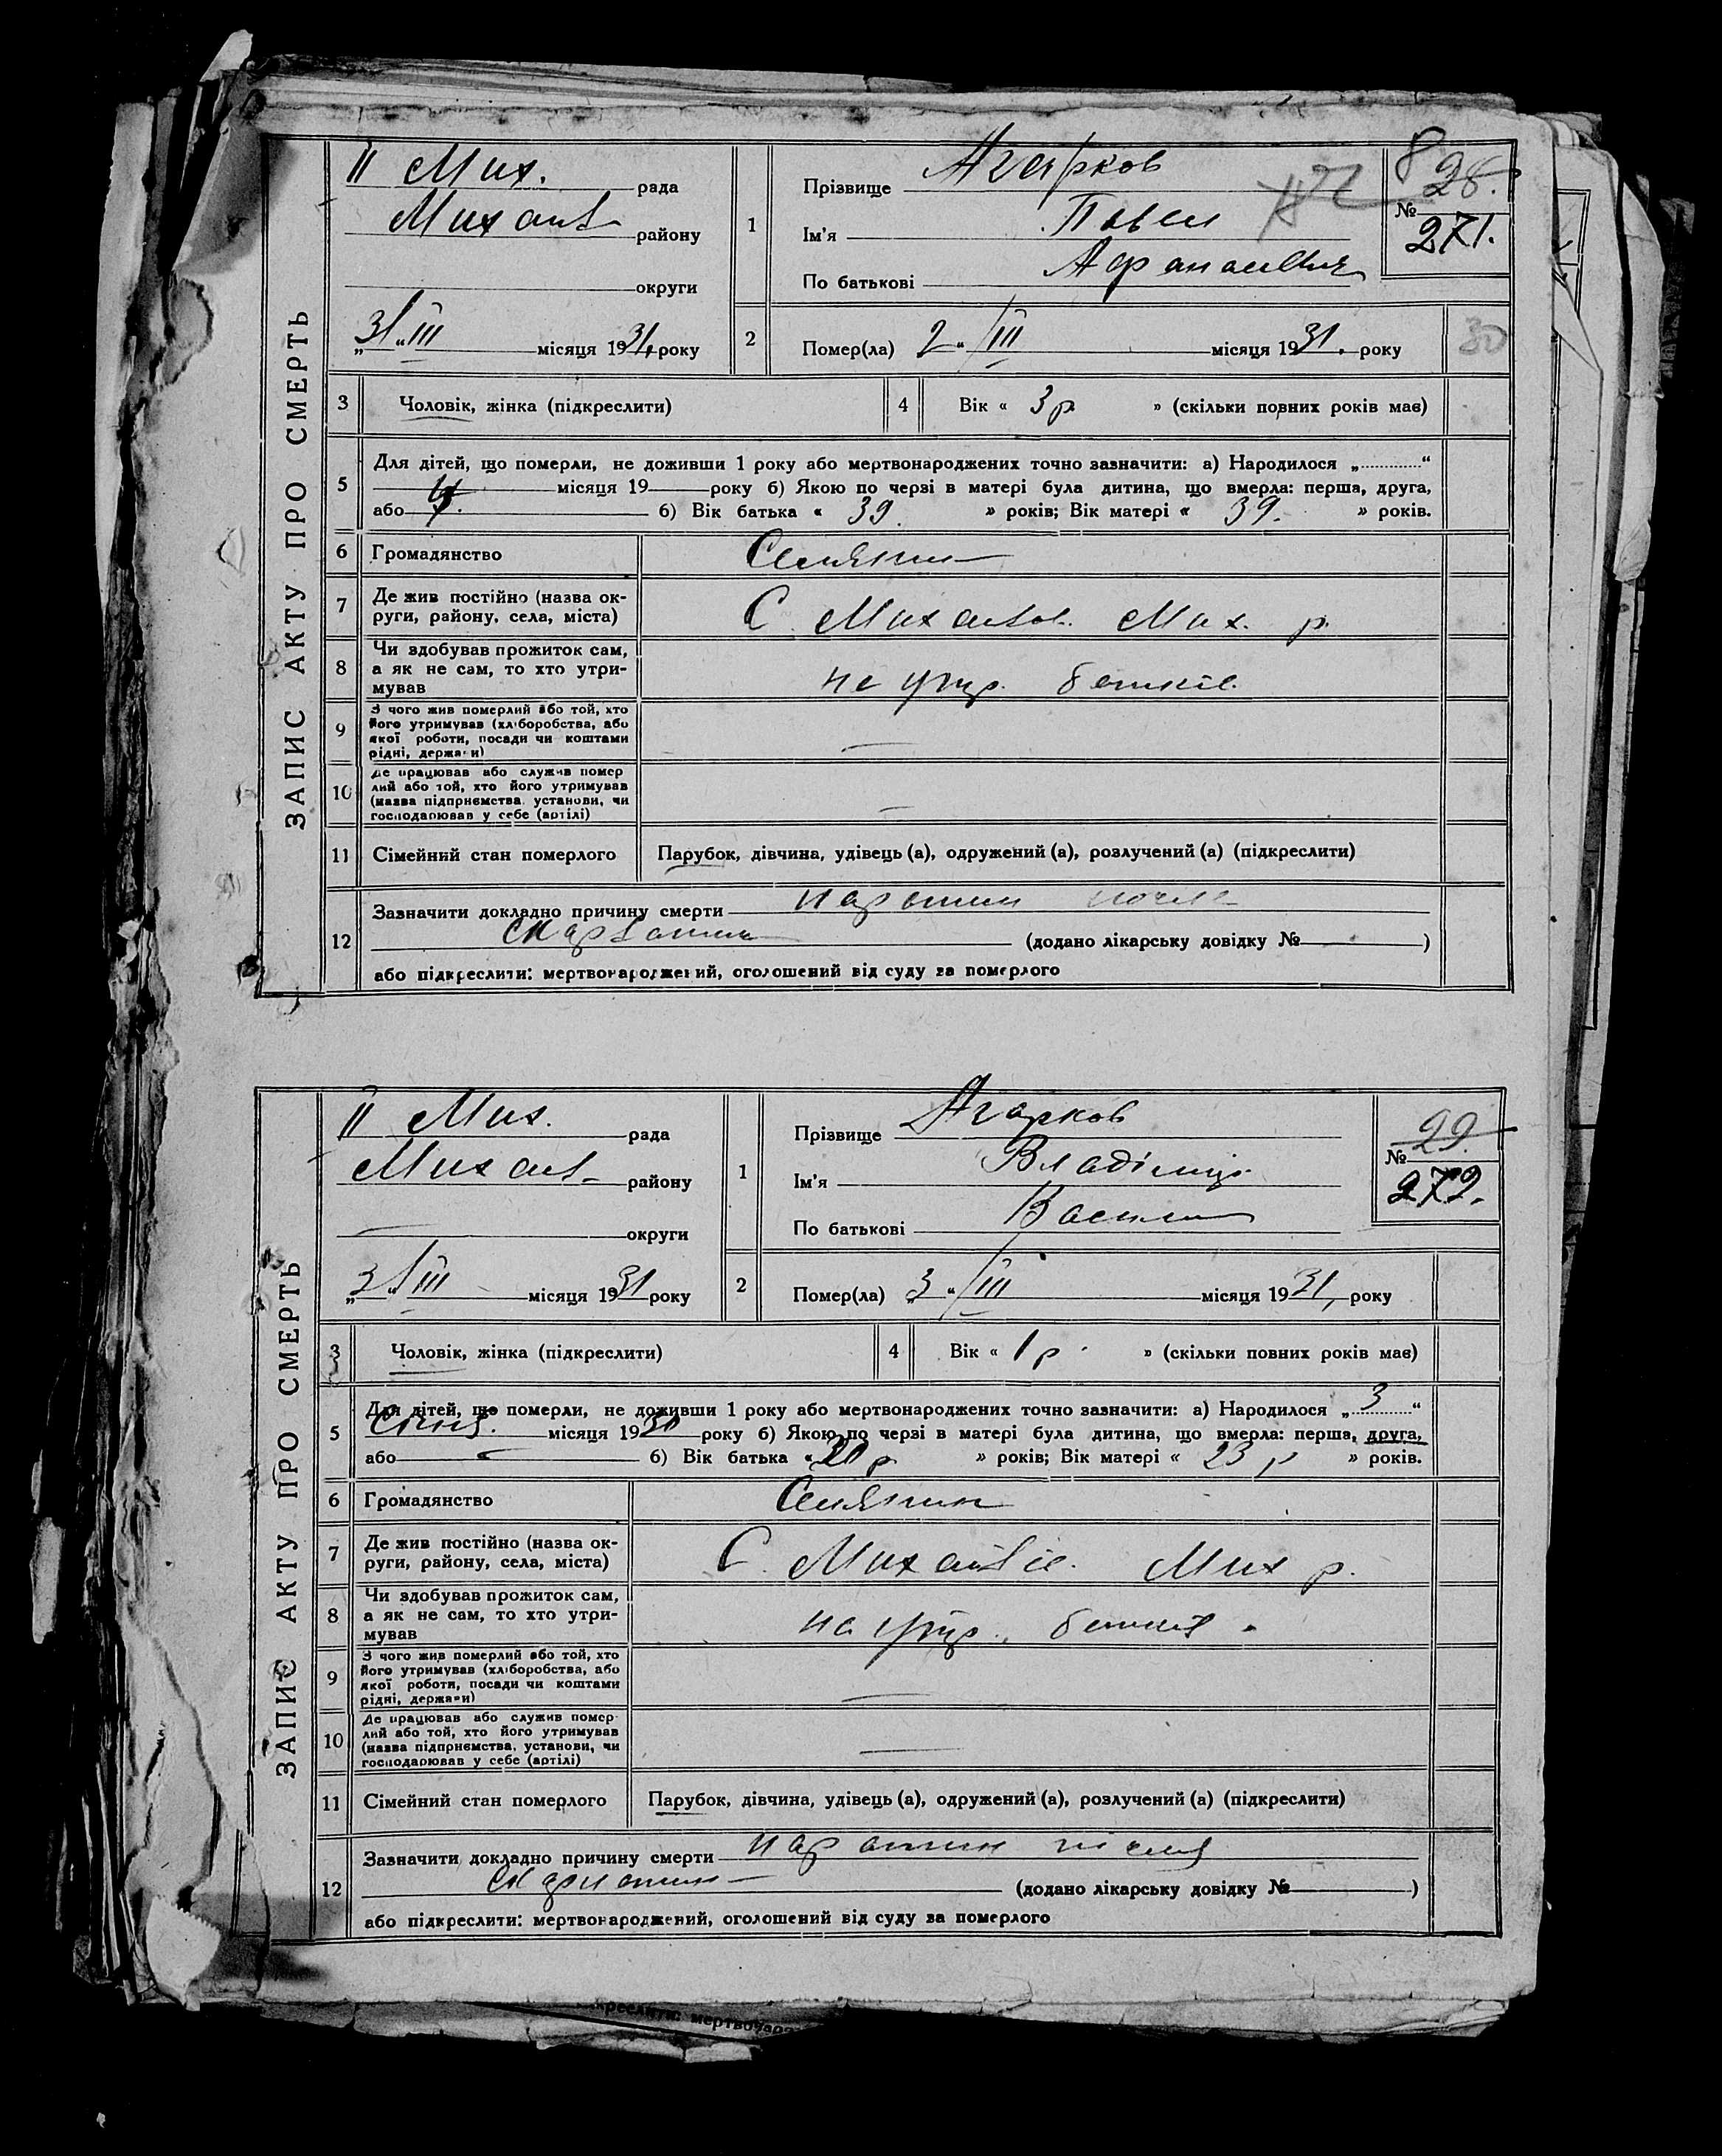 ЗАПИС АКТУ ПРО СМЕРТЬ
ІІ Мих. рада
Михайл району
округи
„31“ ІІІ місяця 1931, року
1 Прізвище Агарков
Ім'я Павел
По батькові Афанасієвич
№ 28.
271.
2 Помер(ла) 2 “ ІІІ місяця 1931. року
30
3 Чоловік, жінка (підкреслити)
4 Вік « 3 р. » (скільки повних років має)
5 Для дітей, що померли, не доживши 1 року або мертвонароджених точно зазначити: а) Народилося „............“
місяця 19 року б) Якою по черзі в матері була дитина, що вмерла: перша, друга,
або б) Вік батька « 39. » років; Вік матері « 39. » років.
6 Громадянство Селянин
7 Де жив постійно (назва округи, району, села, міста)
С. Михайлов. Мих. р.
8 Чи здобував прожиток сам,
а як не сам, то хто утри-
мував
на утр. батьків.
9 З чого жив померлий або той, хто
його утримував (хліборобства, або
якої роботи, посади чи коштами
рідні, держави)
—
10 Де працював або служив помер
лий або той, хто його утримував
(назва підприємства, установи, чи
господарював у себе (артілі)
—
11 Сімейний стан померлого Парубок, дівчина, удівець (а), одружений (а), розлучений (а) (підкреслити)
12 Зазначити докладно причину смерти
скарлатини (додано лікарську довідку № )
або підкреслити: мертвонароджений, оголошений від суду за померлого
ЗАПИС АКТУ ПРО СМЕРТЬ
ІІ Мих. рада
Михайл. району
— округи
„31“ ІІІ місяця 1931 року
1 Прізвище Агарков
Ім'я Владімір
По батькові Васил
№ 29.
272.
2 Помер(ла) „3 “ ІІІ місяця 1931, року
3 Чоловік, жінка (підкреслити)
4 Вік « 1 р. » (скільки повних років має)
5 Для дітей, що померли, не доживши 1 року або мертвонароджених точно зазначити: а) Народилося „ 3 “
Січня. місяця 1930 року б) Якою по черзі в матері була дитина, що вмерла: перша, друга,
або — б) Вік батька « р. » років; Вік матері « 23 р » років.
6 Громадянство Селянин
7 Де жив постійно (назва округи, району, села, міста)
С. Михайлів. Мих р.
8 Чи здобував прожиток сам,
а як не сам, то хто утри-
мував
на утр. батьків.
9 З чого жив померлий або той, хто
його утримував (хліборобства, або
якої роботи, посади чи коштами
рідні, держави)
—
10 Де працював або служив помер-
лий або той, хто його утримував
(назва підприємства, установи, чи
господарював у себе (артілі)
—
11 Сімейний стан померлого Парубок, дівчина, удівець (а), одружений (а), розлучений (а) (підкреслити)
12 Зазначити докладно причину смерти після
скарлатини (додано лікарську довідку № )
або підкреслити: мертвонароджений, оголошений від суду за померлого